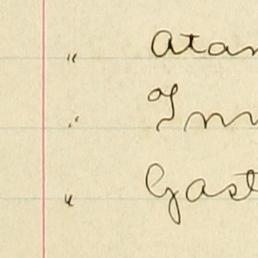 " Atan
" Inn
" Gast